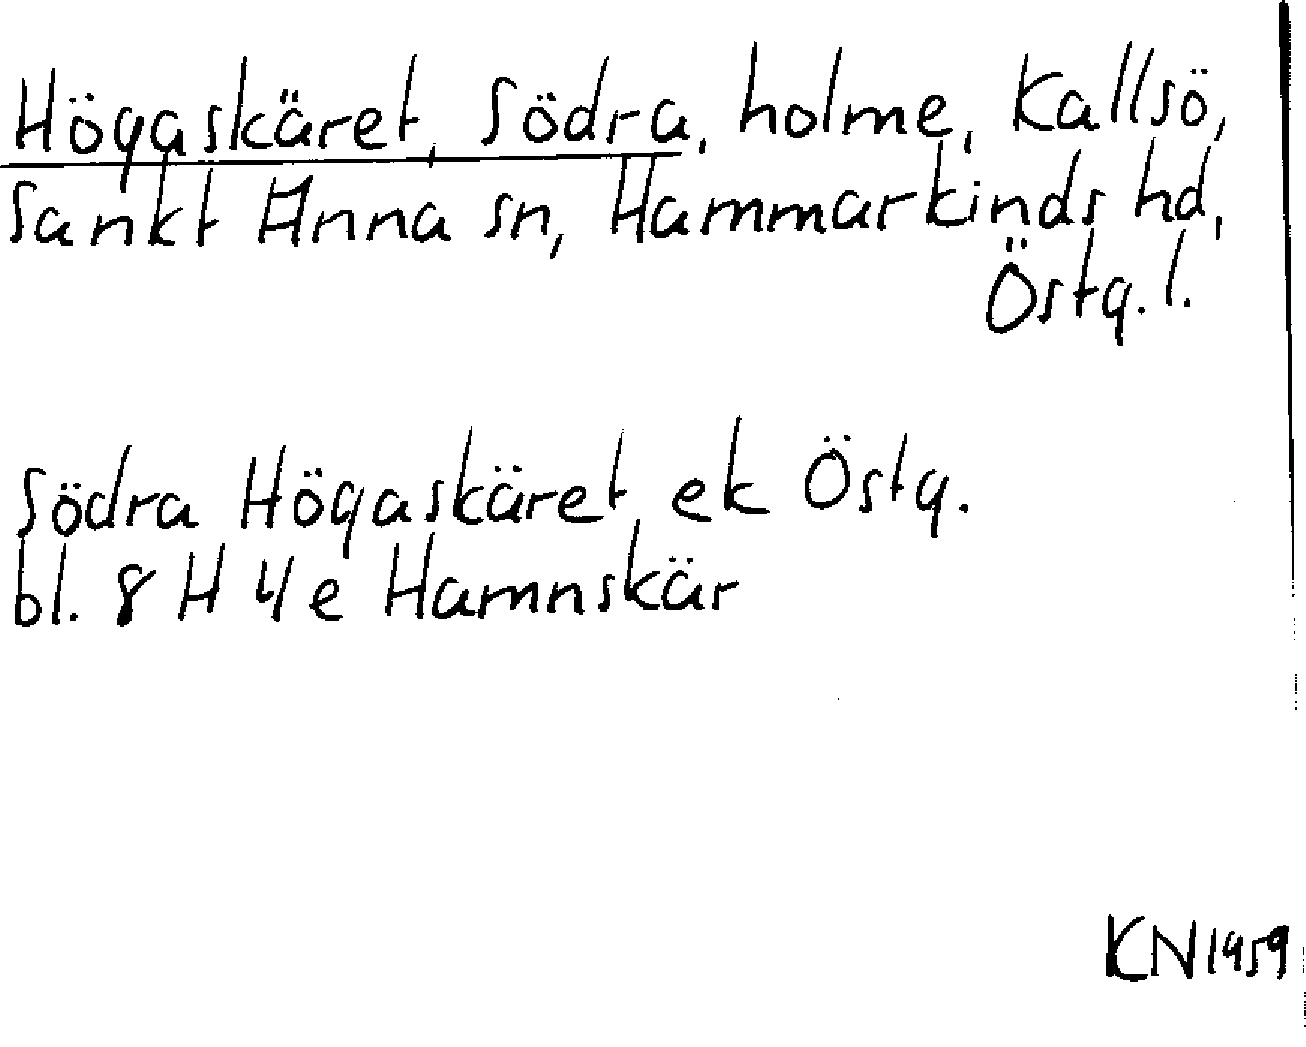 Högaskäret, Södra, holme, Kallsö,
Sankt Anna sn, Hammarkinds hd,
Östg. l.
Södra Högaskäret ek Östg.
bl. 8 H 4e Hamnskär
KN 1959